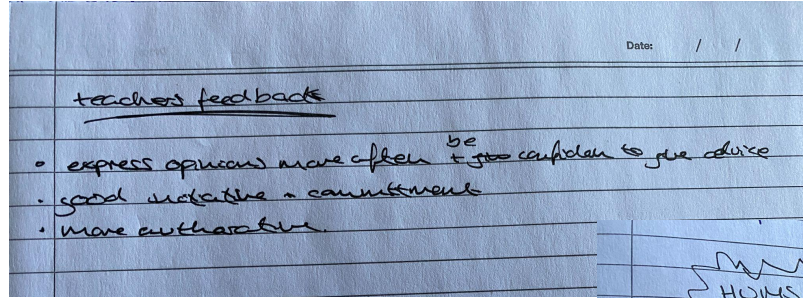 Date: / /
teachers feedback
be
• express opinions more often + give confiden to give advice
• good initative + committment
• more authorative.
HUMS